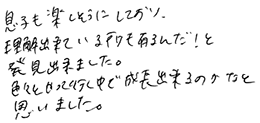 息子も楽しそうにしており、
理解出来ている所もあるんだ！と
発見出来ました。
色々とやって行く中で成長出来るのかなと
思いました。